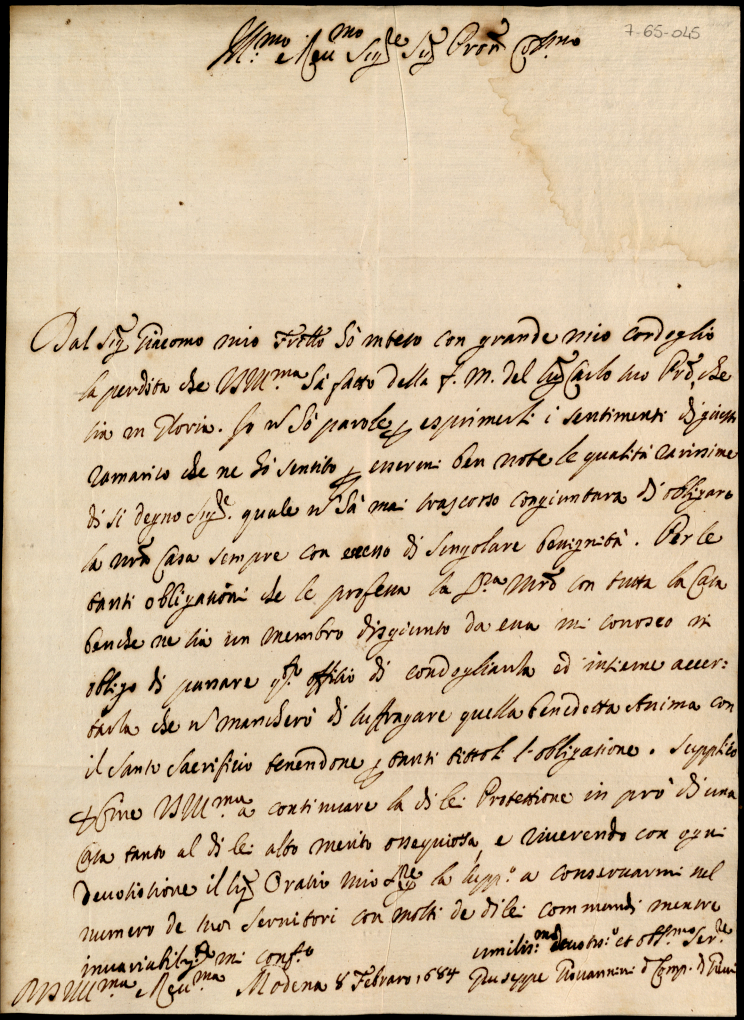 7-65-045
Ill.mo e Reu.mo Sig.re Sig.r Pron Col.mo
Dal Sig.r Giacomo mio Frello hò inteso con grande mio cordoglio
la perdita che VS Ill.ma hà fatto della f. M. del Sig.r Carlo suo Pre, che
sia in Gloria. Io n hò parole p esprimerli i sentimenti di questo
ramarico che ne hò sentito p essermi ben note le qualità rarissime
di si degno Sig.re. quale n hà mai trascorso congiuntura di obligare
la nra Casa sempre con eccesso di singolare benignità. Per le
tanti obligationi che le professa la Sra Mre con tutta la Casa
benche ne sia un membro disgiunto da essa mi conosco in
obligo di passare qto offitio di condoglianza ed insieme accer:
tarla che n mancherò di suffragare quella benedetta Anima con
il Santo Sacrificio tenendone p tanti tittoli l'obligatione. Supplico
VS Ill.ma a continuare la di lei Protettione in prò di una
Casa tanto al di lei alto merito ossequiosa, e riuerendo con ogni
deuotione il Sig.r Oratio mio Sig.re la supp.o a conseruarmi nel
numero de suoi Seruitori con molti de di lei commandi mentre
inuariabilm.te mi conf.o
VS Ill.ma e Reu.ma Modena 8 Febraro 1684
umilis.mo deuotis.o et obl.mo Ser.re
Giuseppe Giouannini d Comp. di